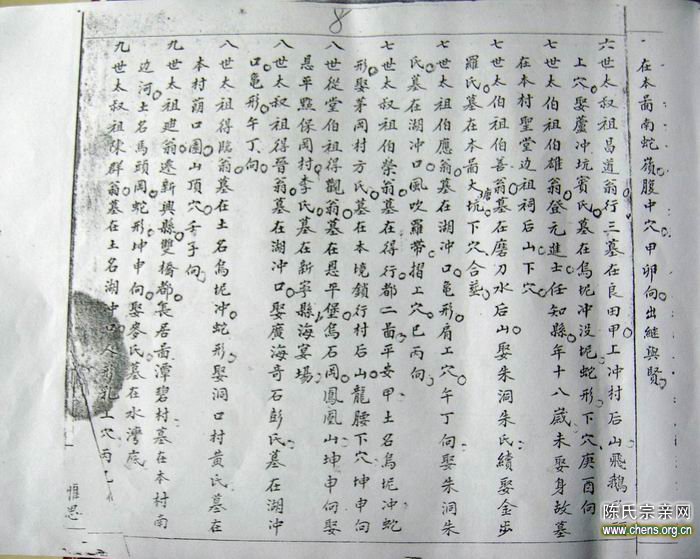 8
在本啚南蛇嶺腹中穴甲卯向出継與賢
六世太叔祖昌道翁行三墓在良田甲上冲村后山飛鵝
上穴娶蘆冲坑賓氏墓在烏坭冲没坭蛇形下穴庚酉向
七世太伯祖伯雄翁登元進士任知縣年十八歲未娶身故墓
在本村聖堂边祖祠后山下穴
七世太伯祖伯善翁墓在磨刀水后山娶朱洞朱氏續娶金出
羅氏墓在本啚大塘坑下穴合塟
七世太伯祖伯應翁墓在湖冲口龟形肩上穴午丁向娶朱洞朱
氏墓在湖冲口風吹羅帶摺上穴巳丙向
七世太叔祖伯榮翁墓在得行都二啚平安甲土名烏坭冲蛇
形娶茅岡村方氏墓在本境鎖行村后山龍腰下穴坤申向
八世從堂伯祖得觀翁墓在恩平堡烏石岡鳳凰山坤申向娶
恩平㸃保岡村李氏墓在新寧縣海宴場
八世太叔祖得晉翁墓在湖冲口娶廣海奇石彭氏墓在湖冲
口龟形午丁向
八世太祖得臨翁墓在土名烏坭冲蛇形娶洞口村黄氏墓在
本村萠口園山頂穴壬子向
九世太祖廸翁迁新興縣雙橋都長居啚潭碧村墓在本村南
边河土名馬頭岡蛇形坤申向娶麥氏墓在水灣底
九世太叔祖陳群翁墓在土名湖冲口人形乳上穴丙
惟思
陈氏宗亲网
www.chens.org.cn